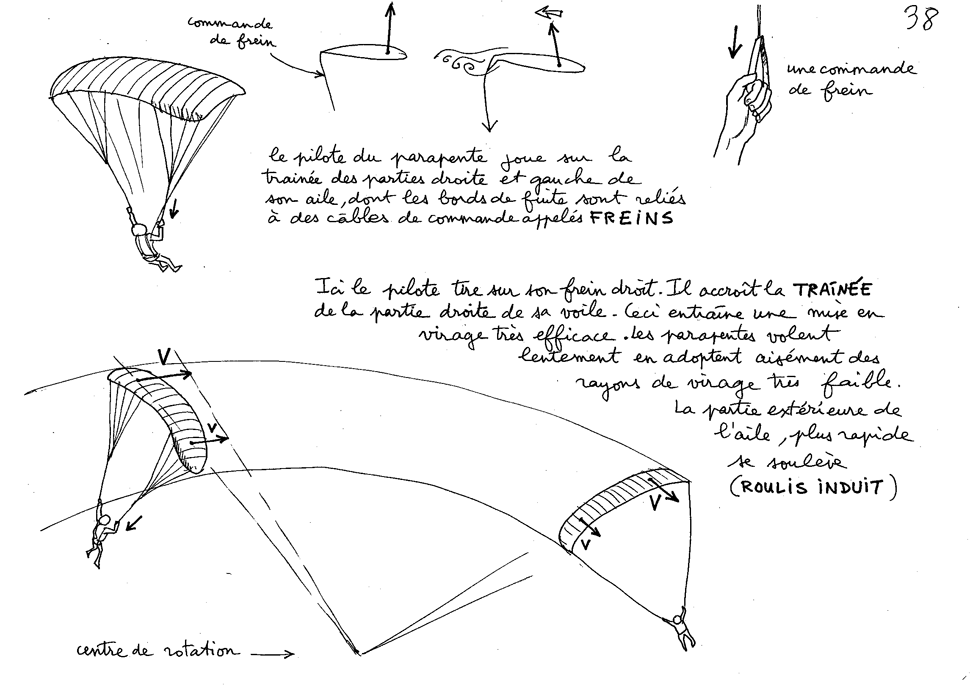 38
commande
de frein
une commande
de frein
le pilote du parapente joue sur la
trainée des parties droite et gauche de
son aile, dont les bords de fuite sont reliés
à des câbles de commande appelés FREINS
Ici le pilote tire sur son frein droit. Il accroît la TRAÎNÉE
de la partie droite de sa voile. Ceci entraîne une mise en
virage très efficace. Les parapentes volent
lentement en adoptent aisément des
rayons de virage très faible.
La partie extérieure de
l'aile, plus rapide
se soulève
(ROULIS INDUIT)
V
v
V
v
centre de rotation